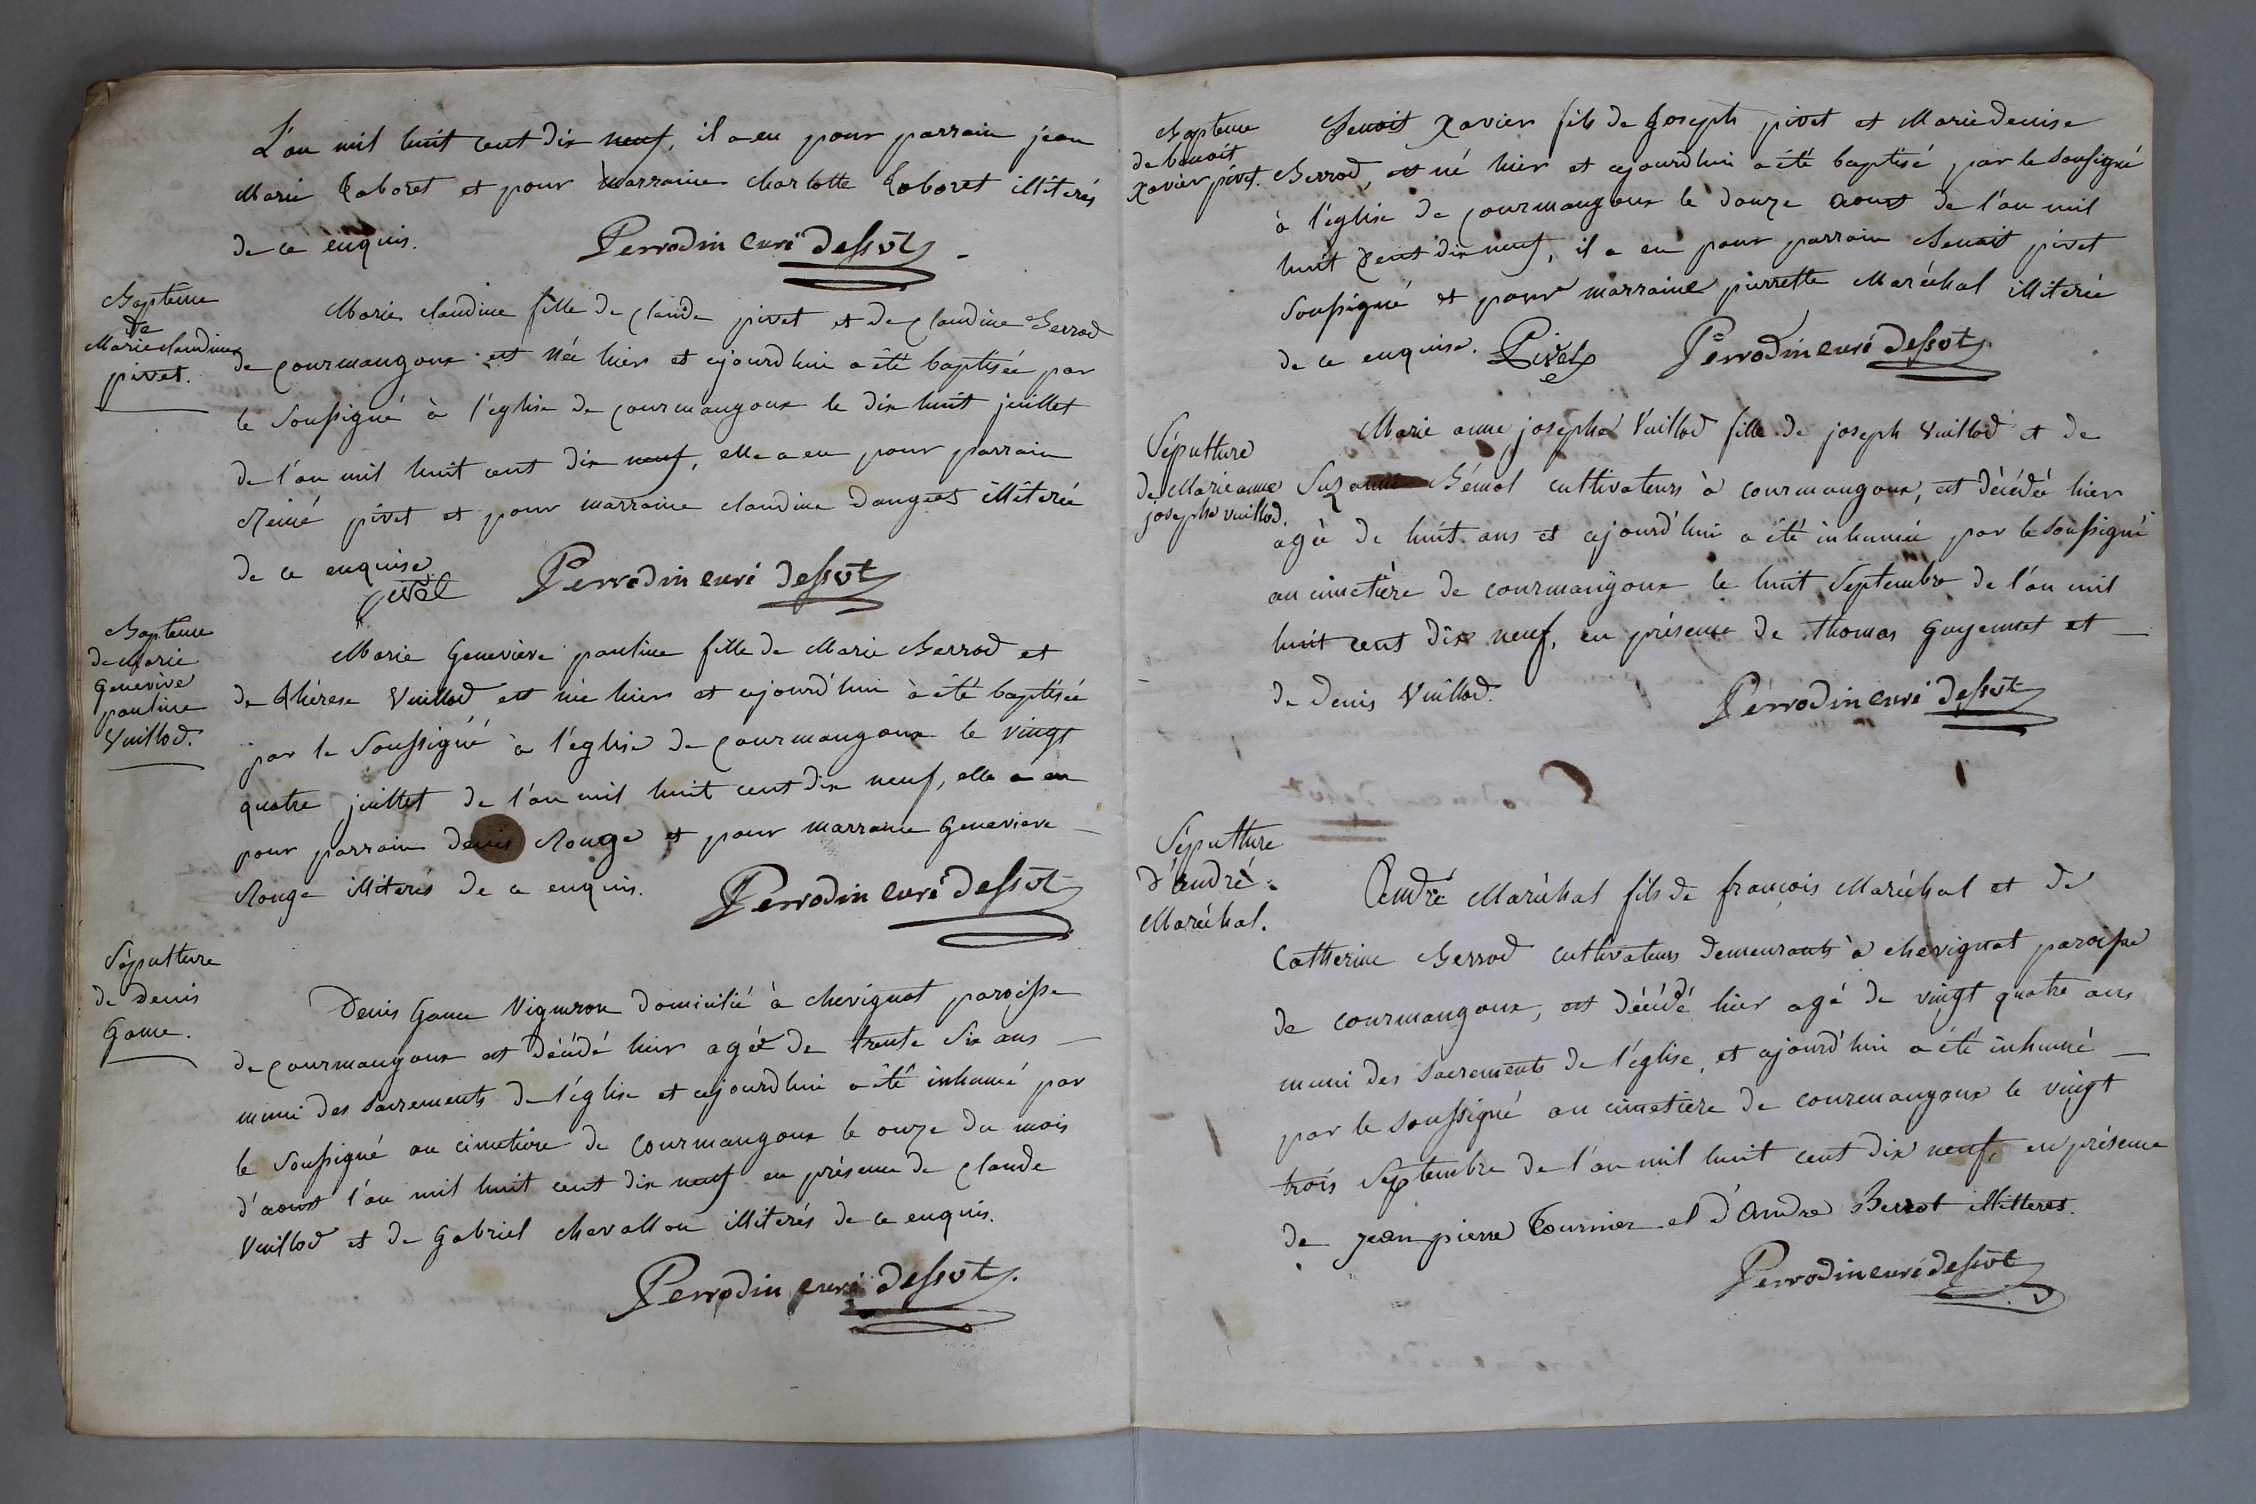 L'an mil huit cent dix neuf, il a eu pour parrain jean
Marie Taboret et pour marraine charlotte Taboret illiterés
de ce enquis.
Perrodin curé dessvt
Baptême
de
Marie claudine
pivet.
Marie claudine fille de claude pivet et de claudine Berrod
de courmangoux est née hier et ajourd'hui a été baptisée par
le Soussigné à l'eglise de courmangoux le dix huit juillet
de l'an mil huit cent dix neuf, elle a eu pour parrain
Réné pivet et pour marraine claudine dangeot illiterée
de ce enquise
pivet
Perrodin curé dessvt
Bapteme
de Marie
Genevive
pauline
Vuillod.
Marie Genevieve pauline fille de Marie Berrod et
de thérese Vuillod est née hier et ajourd'hui à été baptisée
par le Soussigné à l'eglise de courmangoux le vingt
quatre juillet de l'an mil huit cent dix neuf, elle a eu
pour parrain denis Rouge et pour marraine Genevieve
Rouge illiterés de ce enquis.
Perrodin curé dessvt
Sépulture
de Denis
Game.
Denis Game Vigneron domicilié à chevignat paroisse
de courmangoux est décédé hier agé de trente Six ans
muni des Sacrements de l'église et ajourd'hui a été inhumé par
le Soussigné au cimetière de courmangoux le onze du mois
d'aoust l'an mil huit cent dix neuf en présence de claude
Vuillod et de Gabriel chevallon illiterés de ce enquis.
Perrodin curé dessvt
Bapteme
de benoit
Xavier pivet.
Benoit Xavier fils de Joseph pivet et Marie denise
Berrod, est né hier et ajourd'hui a été baptisé par le Sousigné
à l'église de courmangoux le douze aoust de l'an mil
huit cent dix neuf, il a eu pour parrain Benoit pivet
Soussigné et pour marraine pierrette Maréchal illiterée
de ce enquise. Pivet
Perrodin curé dessvt
Sépulture
de Marie anne
josephe vuillod.
Marie anne josephe Vuillod fille de joseph Vuillod et de
Suzanne Gémol cultivateurs à courmangoux, est décédée hier
agée de huit ans et ajourd'hui a été inhumée par le Soussigné
au cimetière de courmangoux le huit Septembre de l'an mil
huit cent dix neuf, en présence de thomas Guyennet et
de denis Vuillod.
Perrodin curé dessvt
Sépulture
d'andré
Maréchal.
André Maréchal fils de françois Maréchal et de
Catherine Berrod cultivateurs demeurants à chevignat paroisse
de courmangoux, est décédé hier agé de vingt quatre ans
muni des Sacrements de l'église, et ajourd'hui a été inhumé
par le soussigné au cimetiere de courmangoux le vingt
trois Septembre de l'an mil huit cent dix neuf, en présence
de jean pierre Tournier et d'André Berrot illitteres.
Perrodin curé dessvt